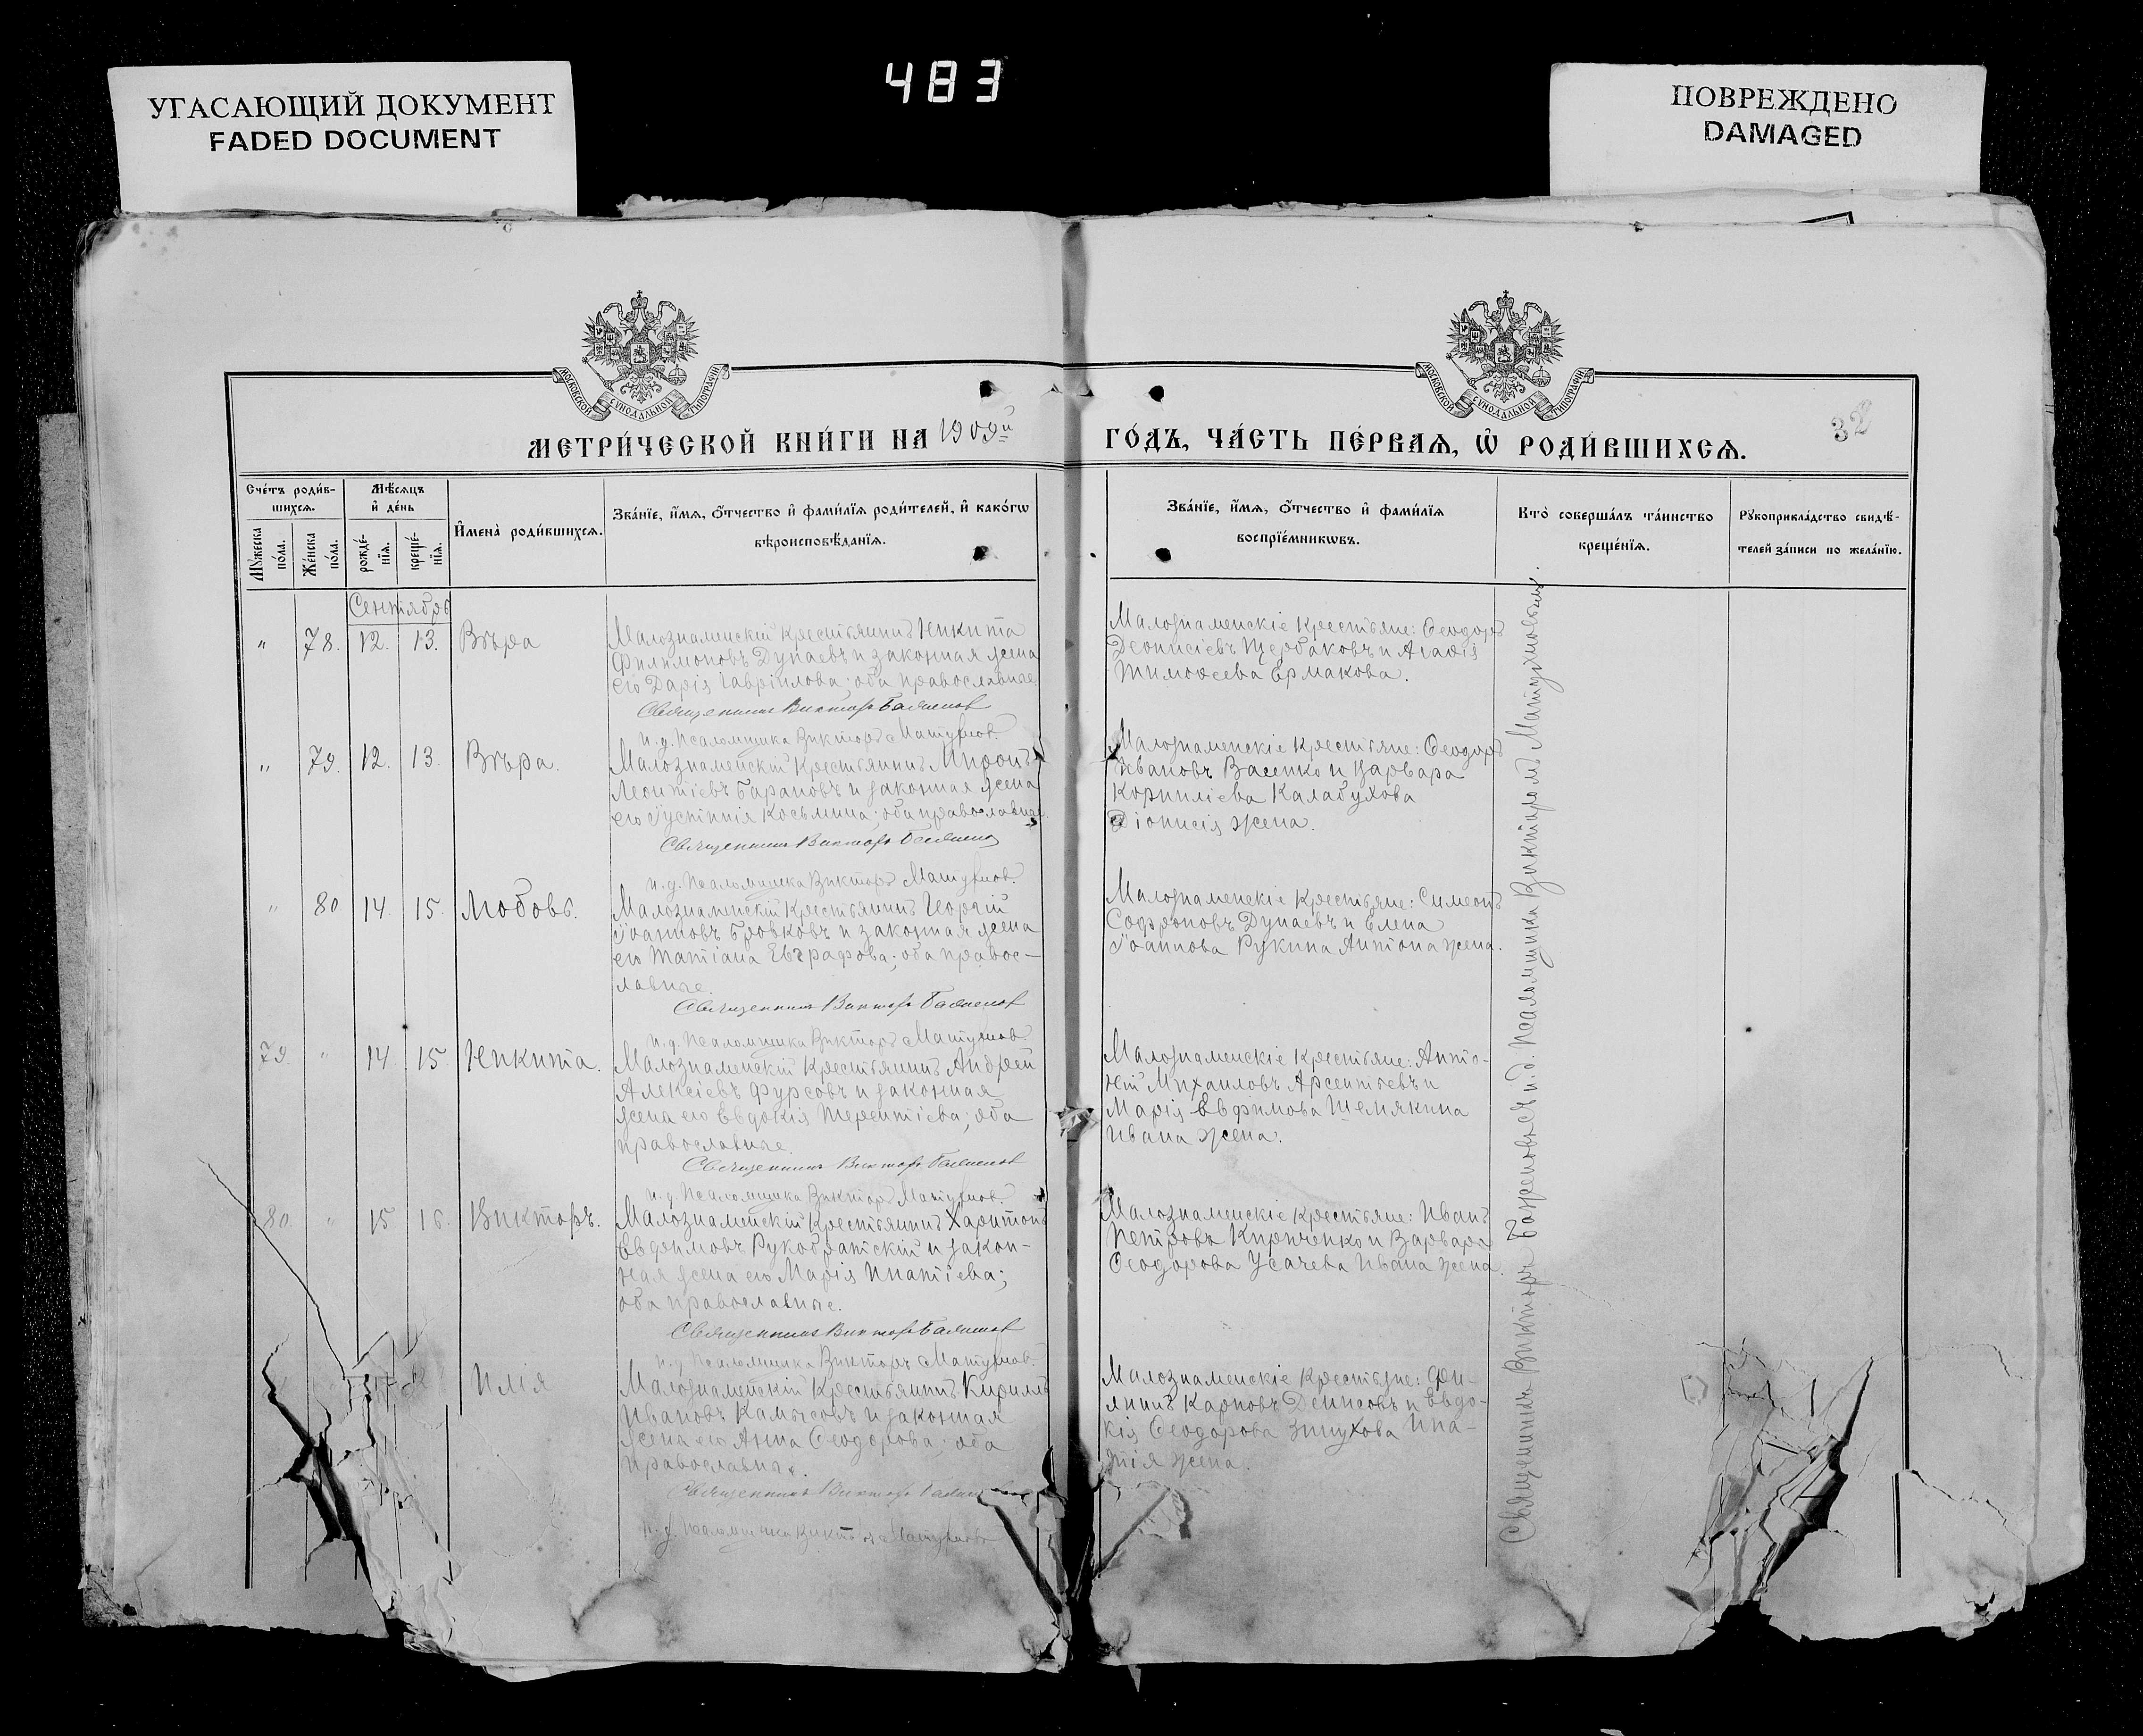 483
УГАСАЮЩИЙ ДОКУМЕНТ
FADED DOCUMENT
ПОВРЕЖДЕНО
DAMAGED
МОСКОВСКОЙ СѴНОДАЛЬНОЙ ТИПОГРАФІИ
МОСКОВСКОЙ СѴНОДАЛЬНОЙ ТИПОГРАФІИ
32
МЕТРИ́ЧЕСКОЙ КНИ́ГИ НА 1909й ГО́ДЪ, ЧА́СТЬ ПЕ́РВАѦ, Ѡ҆ РОДИ́ВШИХСѦ.
Сче́тъ роди́в-
шихсѧ.
Мꙋ́жеска по́ла.
Же́нска по́ла.
Мѣ́сѧцъ
и҆ де́нь
рожде́-
нїѧ.
креще́-
нїѧ.
И҆мена̀ роди́вшихсѧ.
Зва́нїе, и҆́мѧ, ѻ҆́тчество и҆ фами́лїѧ роди́телей, и҆ како́гѡ
вѣроисповѣ́данїѧ.
Зва́нїе, и҆́мѧ, ѻ҆́тчество и҆ фами́лїѧ
воспрїе́мникѡвъ.
Кто̀ соверша́лъ та́инство
креще́нїѧ.
Рꙋкоприкла́дство свидѣ́-
телей за́писи по жела́нїю.
Сентябрь
" 78. 12. 13. Вѣра
Малознаменскій крестьянинъ Никита
Филимоновъ Дунаевъ и законная жена
его Дарія Гавріилова; оба православные.
Священникъ Викторъ Баженов
и. д. Псаломщика Викторъ Матузков.
Малознаменскіе крестьяне: Ѳеодоръ
Деонисіевъ Щербаковъ и Агаѳія
Тимоѳеева Ермакова.
" 79. 12. 13. Вѣра.
Малознаменскій крестьянинъ Миронъ
Леонтіевъ Барановъ и законная жена
его Іустинія Косьмина; оба православные.
Священникъ Викторъ Баженов
и. д. Псаломщика Викторъ Матузков.
Малознаменскіе крестьяне: Ѳеодоръ
Ивановъ Васенко и Варвара
Корниліева Калабухова
Діонисія жена.
" 80 14. 15. Любовь.
Малознаменскій крестьянинъ Георгій
Іоанновъ Бровковъ и законная жена
его Татіана Евграфова; оба право­с-
лавные.
Священникъ Викторъ Баженов
и. д. Псаломщика Викторъ Матузков.
Малознаменскіе крестьяне: Симеонъ
Софроновъ Дунаевъ и Елена
Іоаннова Рукина Антона жена.
79. " 14. 15 Никита.
Малознаменскій крестьянинъ Андрей
Алексіевъ Фурсовъ и законная
жена его Евдокія Терентіева; оба
православные.
Священникъ Викторъ Баженов
и. д. Псаломщика Викторъ Матузков.
Малознаменскіе крестьяне: Анто-
ній Михаиловъ Арсентіевъ и
Марія Евфимова Шемякина
Ивана жена.
80. " 15 16. Викторъ.
Малознаменскій крестьянинъ Харитонъ
Евфимовъ Рукобратскій и закон-
ная жена его Марія Ипатіева;
оба православные.
Священникъ Викторъ Баженов
и. д. Псаломщика Викторъ Матузков.
Малознаменскіе крестьяне: Иванъ
Петровъ Кириченко и Варвара
Ѳеодорова Усачева Ивана жена.
Илія
Малознаменскій крестьянинъ Кириллъ
Ивановъ Камысовъ и законная
жена его Анна Ѳеодорова; оба
православные.
Священникъ Викторъ
и. д. Псаломщика Викторъ Матузков
Малознаменскіе крестьяне: Фи-
липпъ Карповъ Денисовъ и Евдо-
кія Ѳеодорова Зинухова Ипа-
тія жена.
Священникъ Викторъ Баженовъ съ и. д. Псаломщика Викторомъ Матузковымъ.